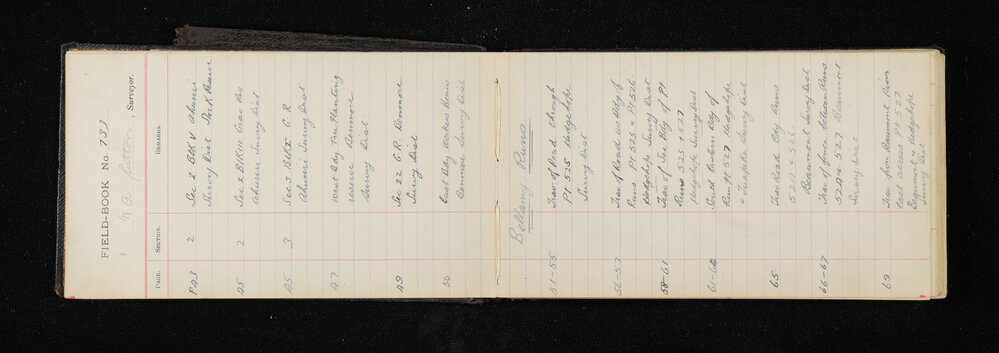 FIELD-BOOK No. 733
, Surveyor.
PAGE. SECTION. REMARKS.
P 43 2 Sec 2 Blk V Ahuriri
Survey Dist
45 2 Sec 2 Blk III
Ahuriri Survey Dist
45 3 Sec 3 Blk I C.R
Ahuriri Survey Dist
47 West Bdy Tree Planting
reserve Benmore
Survey Dist
49 Sec 22 G R Benmore
Survey Dist
50 East Bdy
Benmore Survey Dist
Bellamy Runs.
51-55 Trav of Road through
Pt 525 Hedgehope
Survey Dist
56-57 Trav of Road as Bdy of
Runs Pt 525 & Pt 526
Hedgehope Survey Dist
58-61 Trav of Bdy of Pt
Runs 525 & 527
Hedgehope Survey Dist
61-64 South Eastern Bdy of
Run Pt 527 Hedgehope
Survey Dist
65 Trav Road Bdy Runs
527 & 526
Beaumont Survey Dist
66-67 Trav of fence between Runs
527A & 527 Beaumont
Survey Dist
69 Trav from Beaumont River
East across Pt 527
Beaumont & Hedgehope
Survey Dist